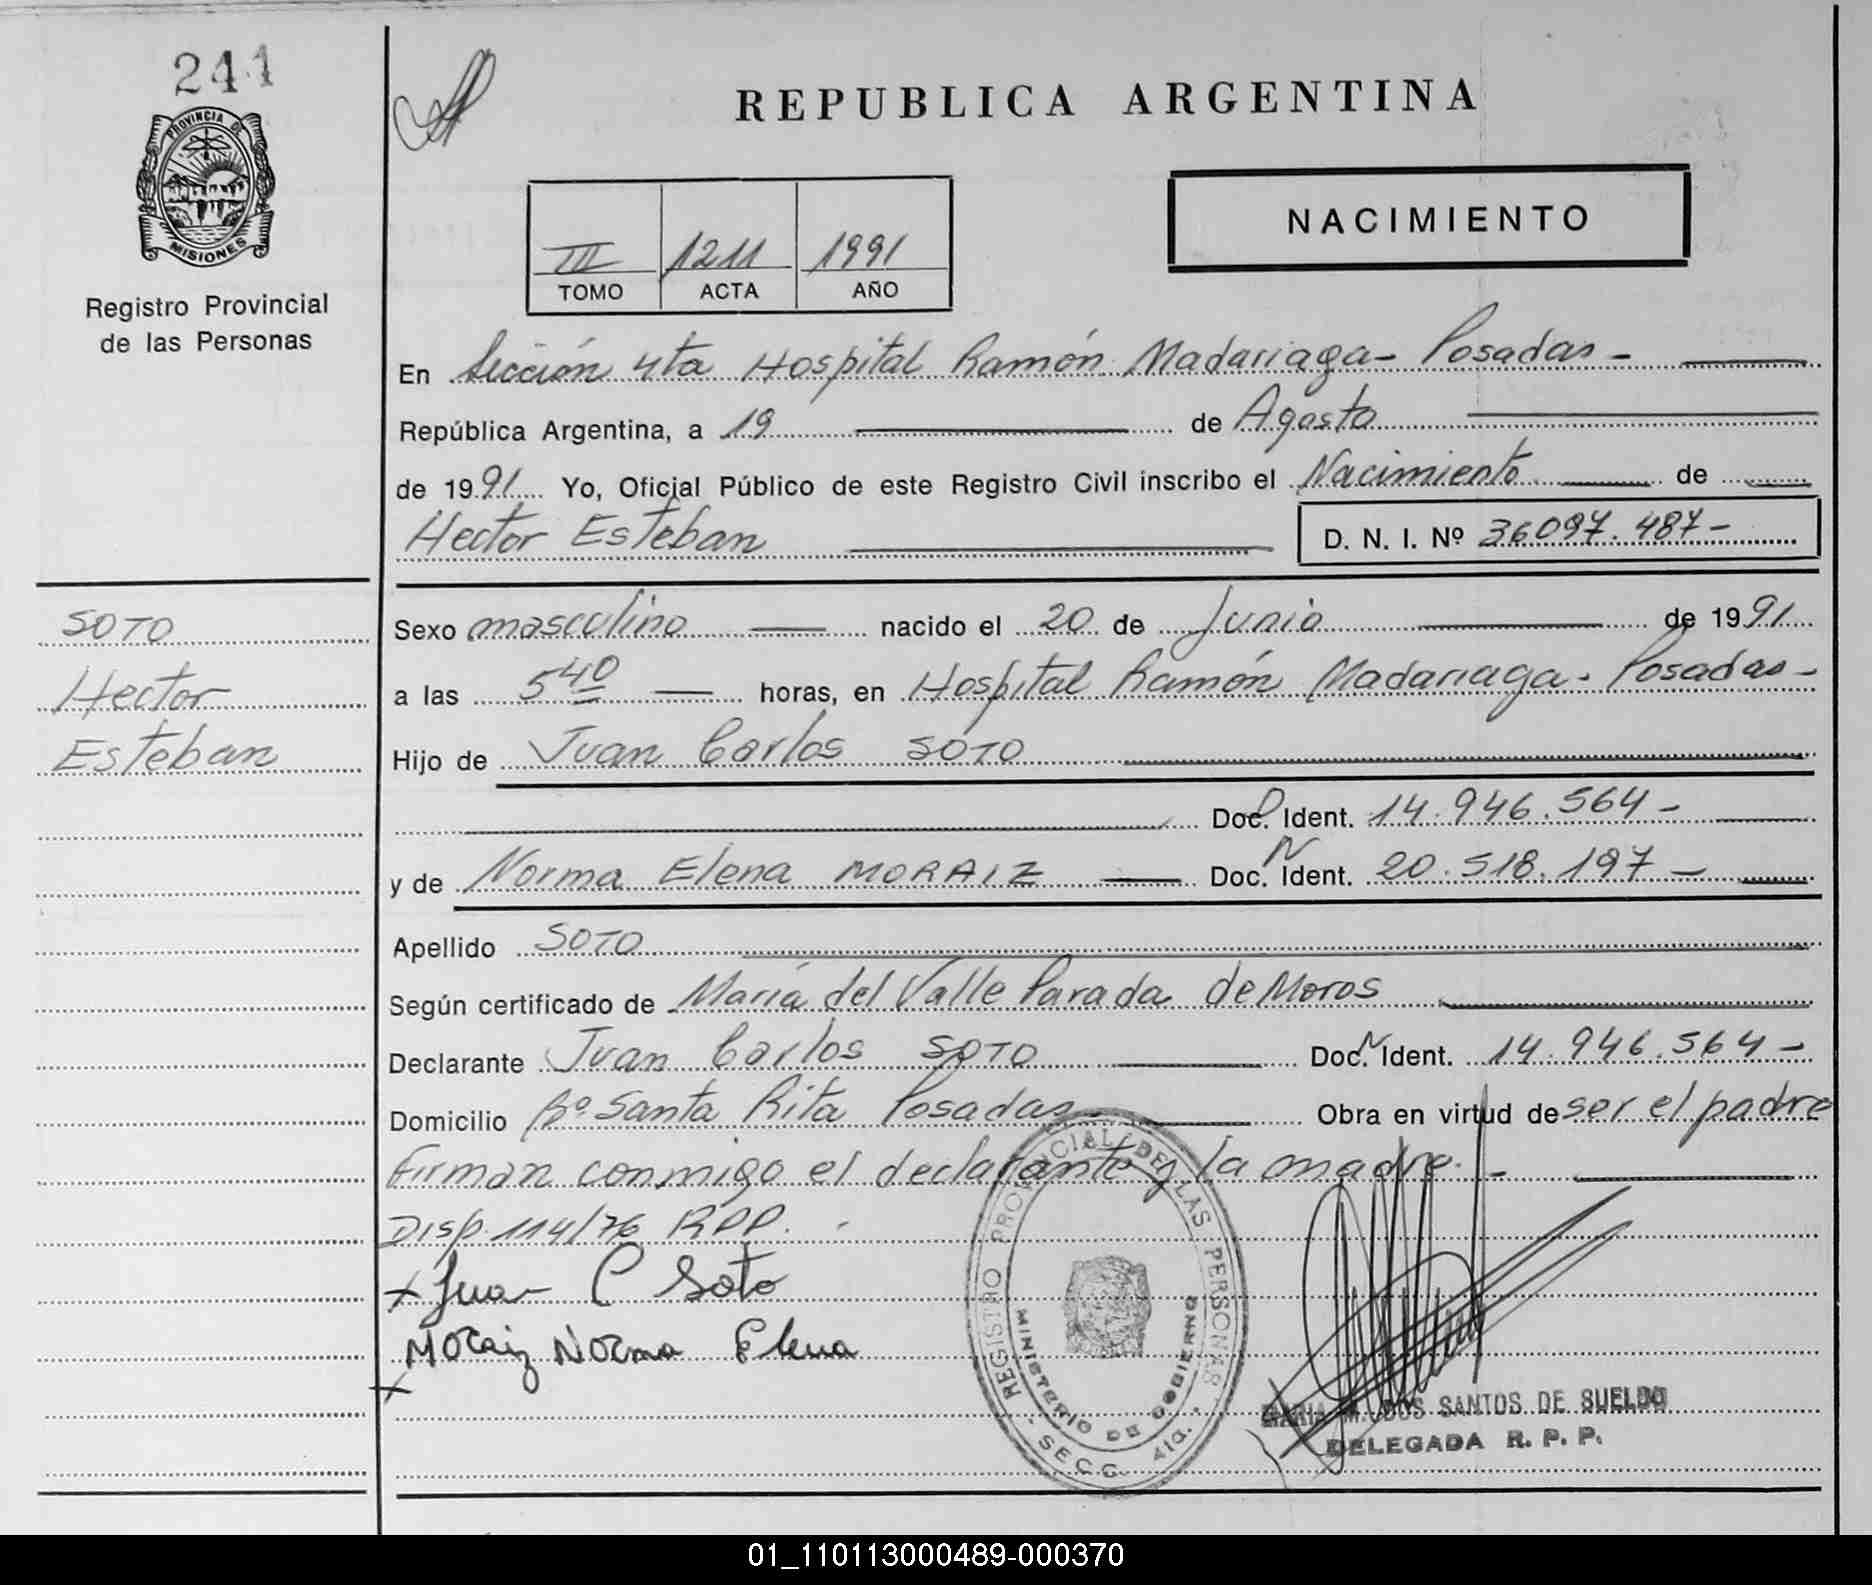 241
PROVINCIA DE
MISIONES
Registro Provincial
de las Personas
SOTO
Hector
Esteban
REPUBLICA ARGENTINA
NACIMIENTO
III 1211 1991
TOMO ACTA AÑO
En Sección 4ta Hospital Ramón Madariaga - Posadas -
República Argentina, a 19 de Agosto
de 1991 Yo, Oficial Público de este Registro Civil inscribo el Nacimiento de
Hector Esteban D. N. I. Nº 36097.487-
Sexo masculino nacido el 20 de Junio de 1991
a las 5 40 horas, en Hospital Ramón Madariaga - Posadas -
Hijo de Juan Carlos SOTO
Doc. Ident. 14.946.564-
y de Norma Elena MORAIZ Doc. N Ident. 20.518.197-
Apellido SOTO
Según certificado de María del Valle Parada de Moros
Declarante Juan Carlos SOTO Doc. N Ident. 14.946.564-
Domicilio Bº Santa Rita Posadas - Obra en virtud de ser el padre
Firman conmigo el declarante y la madre. -
Disp. 114/76 RPP.
x Juan C Soto
Moraiz Norma Elena
x
REGISTRO PROVINCIAL DE LAS PERSONAS
MINISTERIO DE GOBIERNO
SECC. 4ta.
MARIA M. DOS SANTOS DE SUELDO
DELEGADA R. P. P.
01_110113000489-000370